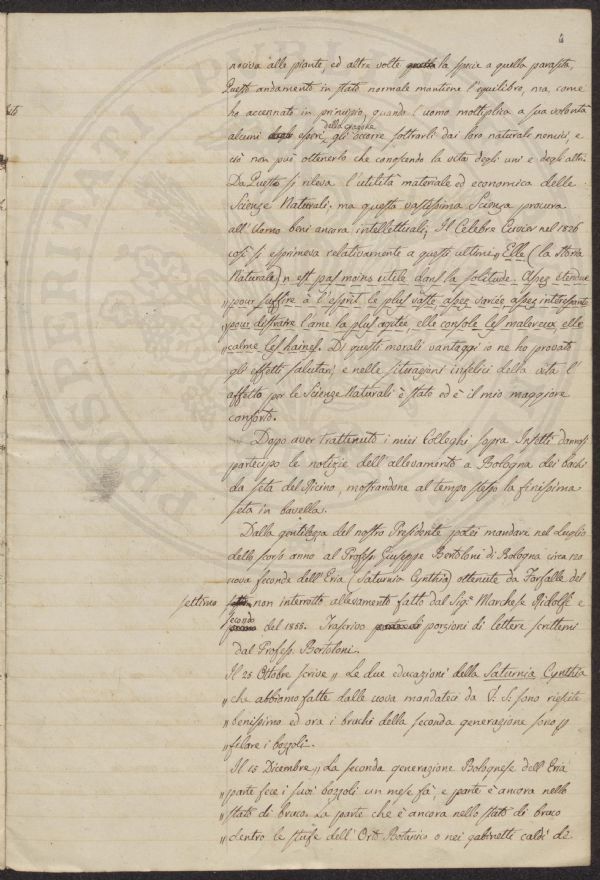 6
nociva alle piante, ed altre volte la specie a quella parasita.
Questo andamento in stato normale mantiene l'equilibro, ma, come
ho accennato in principio, quando l'uomo moltiplica a sua volontà
alcuni esseri, gli occorre soltrarli dai loro naturale nemici, e
ciò non può ottenerlo che conoscendo la vita degli uni e degli altri.
Da Questo si rileva l'utilità materiale ed economica delle
Scienze Naturali. ma questa vastissima Scienza procura
all'Uomo beni ancora intellettuali, Il Celebre Cuvier nel 1826
così si esprimeva relativamente a questi ultimi „ Elle (la Storia
Naturale) n'est pas moins utile dans la solitude. Assez étendue
„ pour suffire à l'esprit le plus vaste assez variée assez intéressante
„ pour distraire l'ame la plus agitée elle console les malereux elle
„ calme les haines. Di questi morali vantaggi io ne ho provato
gli effetti salutari, e nelle situazioni infelici della vita l'
affetto per le Scienze Naturali è stato ed è il mio maggiore
conforto.
Dopo aver trattenuto i miei Colleghi sopra Insetti dannosi
partecipo le notizie dell'allevamento a Bologna dei bachi
da seta del Ricino, mostrandone al tempo stesso la finissima
seta in bavella.
Dalla gentilezza del nostro Presidente potei mandare nel Luglio
dello scorso anno al Profess. Giuseppe Bertoloni di Bologna circa 120
uova feconde dell'Eria (Saturnia Cynthia) ottenute da Farfalle del
settimo non interrotto allevamento fatto dal Sig.r Marchese Ridolfi e
secondo del 1855. Trascrivo porzioni di lettere scrittemi
dal Profess. Bertoloni.
Il 25 Ottobre scrive „ Le due educazioni della Saturnia Cynthia
„ che abbiamo fatte dalle uova mandateci da V. S. sono riescite
„ benissimo ed ora i bruchi della seconda generazione sono a
„ filare i bozzoli.
Il 15 Dicembre „ La seconda generazione Bolognese dell'Eria
„ parte fece i suoi bozzoli un mese fà, e parte è ancora nello
„ stato di bruco. La parte che è ancora nello stato di bruco
„ dentro le stufe dell'Orto Botanico o nei gabinetti caldi di